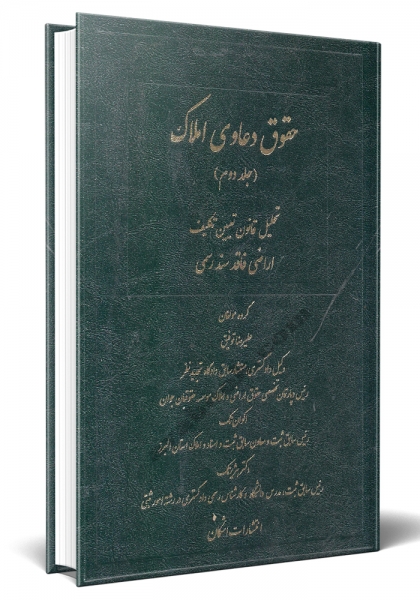 حقوق دعاوی املاک
(جلد دوم)
تحلیل قانون تعیین تکلیف
اراضی فاقد سند رسمی
گروه مولفان
علیرضا توفیق
وکیل دادگستری مستشار سابق دادگاه تجدید نظر
رئیس دپارتمان تخصصی حقوق اراضی و املاک موسسه حقوقدانان جوان
رئیس سابق ثبت و معاون سابق ثبت و اسناد و املاک استان البرز
رئیس سابق ثبت، مدرس دانشگاه و کارشناس رسمی دادگستری در رشته امور ثبتی
انتشارات